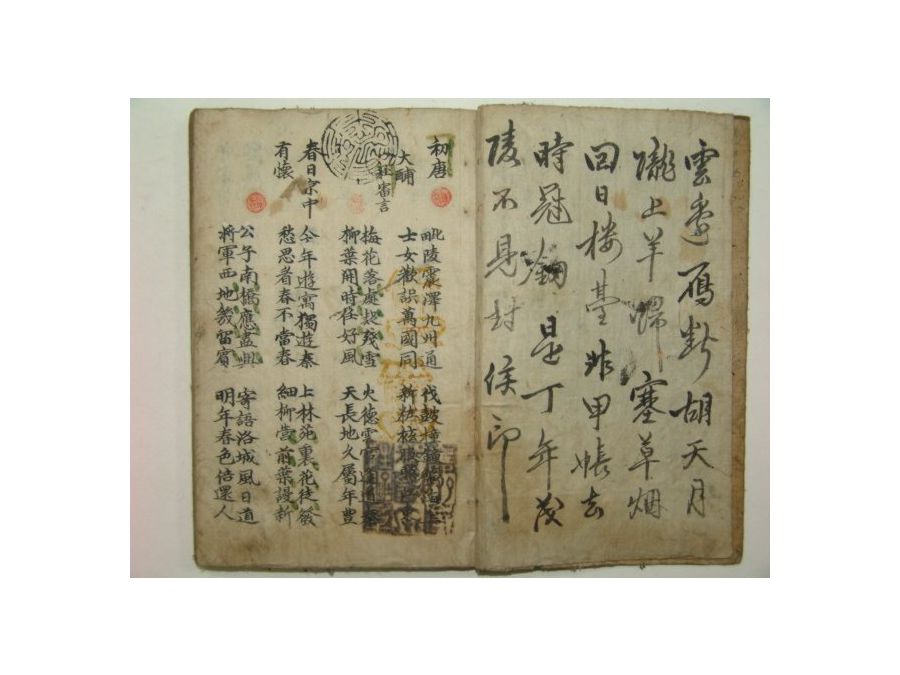 雲邊鴈断胡天月
隴上羊歸塞草烟
回日楼臺非甲帳去
時冠劔是丁年茂
陵不見封侯印
初唐
大酺
杜審言
毗陵震澤九州通
士女歡娛萬國同
伐鼓撞鐘驚海上
新粧袨服照江東
梅花落處疑殘雪
柳葉開時任好風
火德雲官逢道泰
天長地久屬年豊
春日京中
有懷
今年遊寓獨遊秦
愁思看春不當春
上林苑裏花徒發
細柳営前葉謾新
公子南橋應盡興
將軍西地幾留賓
寄語洛城風日道
明年春色倍還人